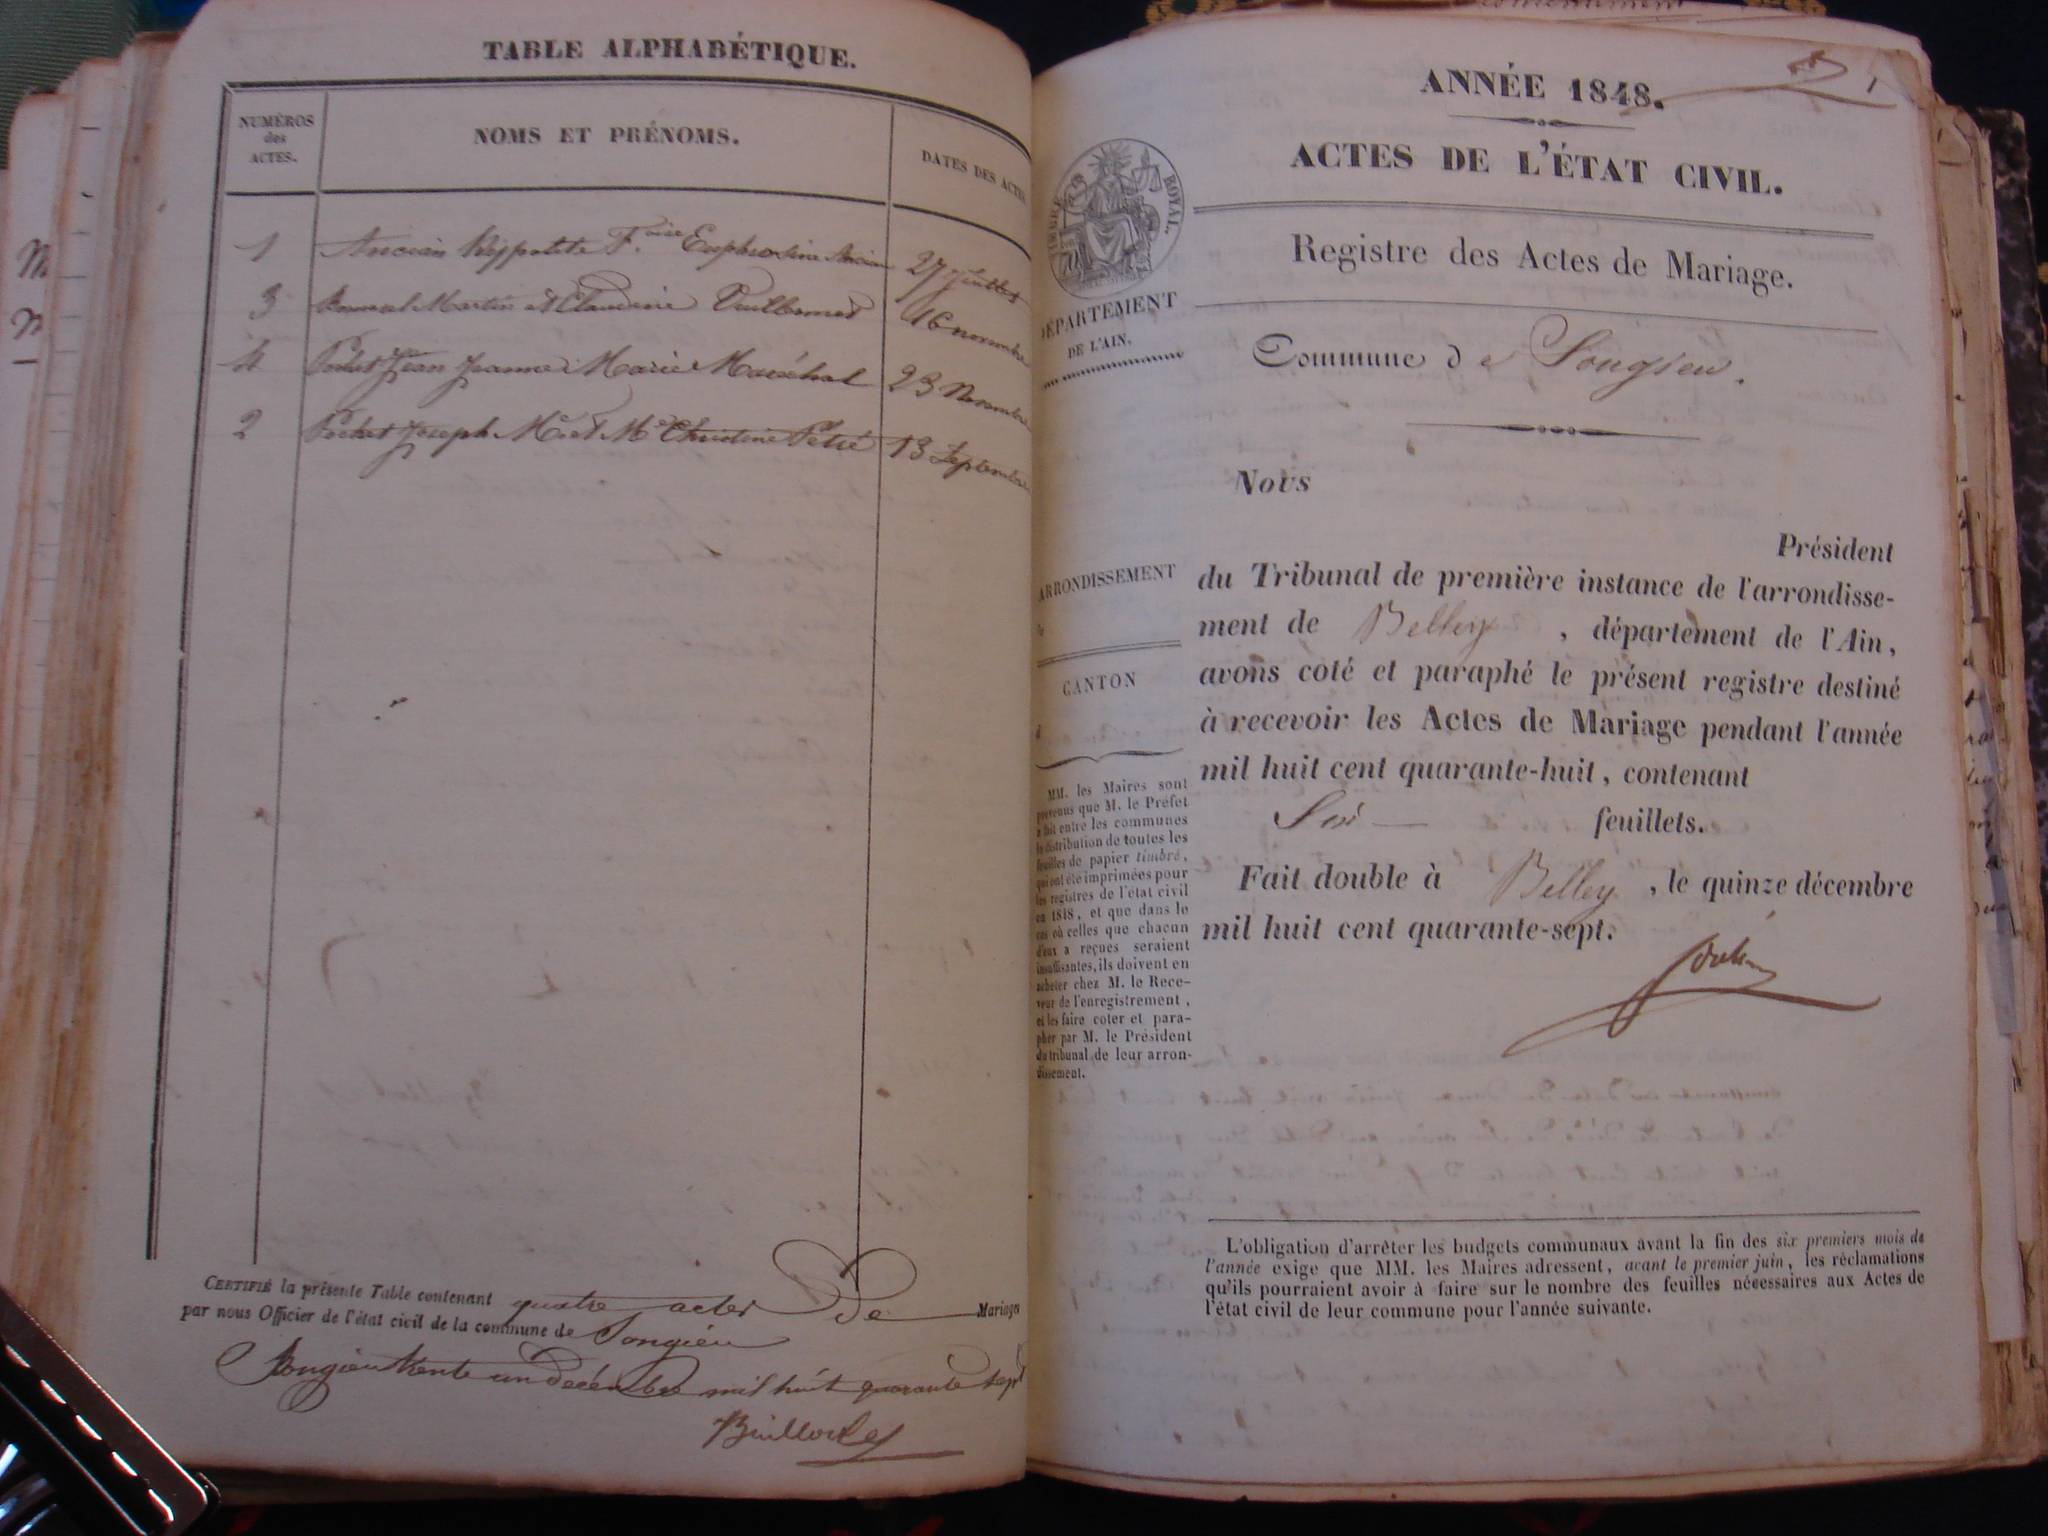 TABLE ALPHABÉTIQUE.
NUMÉROS
des
ACTES.
NOMS ET PRÉNOMS.
DATES DES ACTES
1 Ancian Hyppolite F. Euphrosine Ancian 27 juillet
3 Martin et Claudine 16 novembre
4 Pochet Jean Jeanne Marie Maréchal 23 Novembre
2 Pochet Joseph M. et Mie Christine 13 Septembre
CERTIFIÉ la présente Table contenant quatre actes De Mariages
par nous Officier de l'état civil de la commune de Songieu
Songieu trente un décembre mil huit quarante sept
ANNÉE 1848. 1
ACTES DE L'ÉTAT CIVIL.
TIMBRE ROYAL.
Registre des Actes de Mariage.
DÉPARTEMENT
DE L'AIN.
Commune de Songieu.
Nous
Président
du Tribunal de première instance de l'arrondisse-
ment de Belley , département de l'Ain,
avons coté et paraphé le présent registre destiné
à recevoir les Actes de Mariage pendant l'année
mil huit cent quarante-huit, contenant
Six feuillets.
Fait double à Belley , le quinze décembre
mil huit cent quarante-sept.
ARRONDISSEMENT
CANTON
MM. les Maires sont
prévenus que M. le Préfet
a fait entre les communes
la distribution de toutes les
feuilles de papier timbré,
qui ont été imprimées pour
les registres de l'état civil
en 1848, et que dans le
cas où celles que chacun
d'eux a reçues seraient
insuffisantes, ils doivent en
acheter chez M. le Rece-
veur de l'enregistrement,
et les faire coter et para-
pher par M. le Président
du tribunal de leur arron-
dissement.
L'obligation d'arrêter les budgets communaux avant la fin des six premiers mois de
l'année exige que MM. les Maires adressent, avant le premier juin, les réclamations
qu'ils pourraient avoir à faire sur le nombre des feuilles nécessaires aux Actes de
l'état civil de leur commune pour l'année suivante.